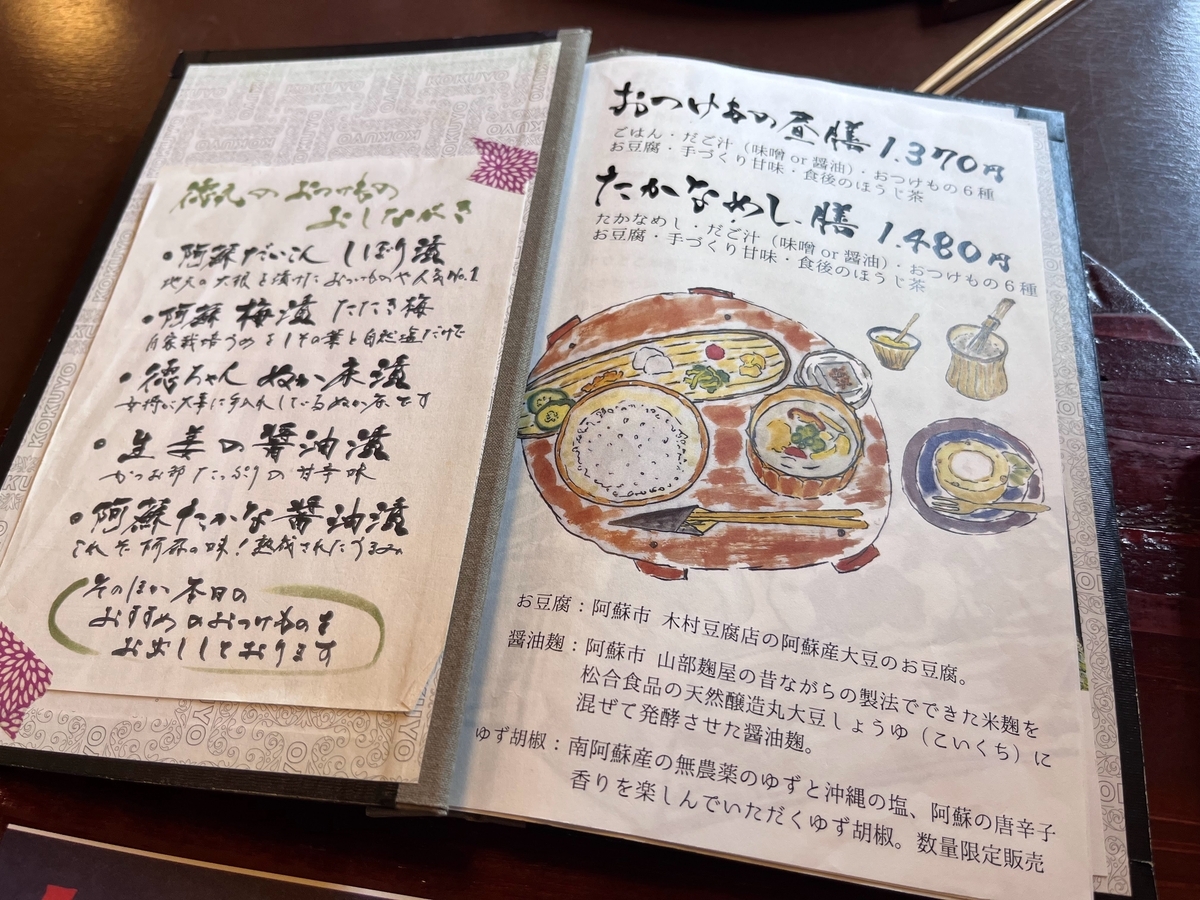 徳丸のおつけもの
おしながき
・阿蘇だいこん しぼり漬
地元の大根を漬けたおつけもの 人気No.1
・阿蘇 梅漬 たたき梅
自家栽培うめをしその葉と自然塩だけで
・徳ちゃん ぬか床漬
女将が大事に手入れしているぬか床です
・生姜の醤油漬
かつお節たっぷりの甘辛味
・阿蘇たかな醤油漬
これぞ阿蘇の味!熟成されたうまみ
そのほか本日の
おすすめのおつけものも
お出ししております
おつけもの昼膳 1.370円
ごはん・だご汁(味噌 or 醤油)・おつけもの6種
お豆腐・手づくり甘味・食後のほうじ茶
たかなめし膳 1.480円
たかなめし・だご汁(味噌 or 醤油)・おつけもの6種
お豆腐・手づくり甘味・食後のほうじ茶
お豆腐:阿蘇市 木村豆腐店の阿蘇産大豆のお豆腐。
醤油麹:阿蘇市 山部麹屋の昔ながらの製法でできた米麹を
松合食品の天然醸造丸大豆しょうゆ(こいくち)に
混ぜて発酵させた醤油麹。
ゆず胡椒:南阿蘇産の無農薬のゆずと沖縄の塩、阿蘇の唐辛子
香りを楽しんでいただくゆず胡椒。数量限定販売
KOKUYO